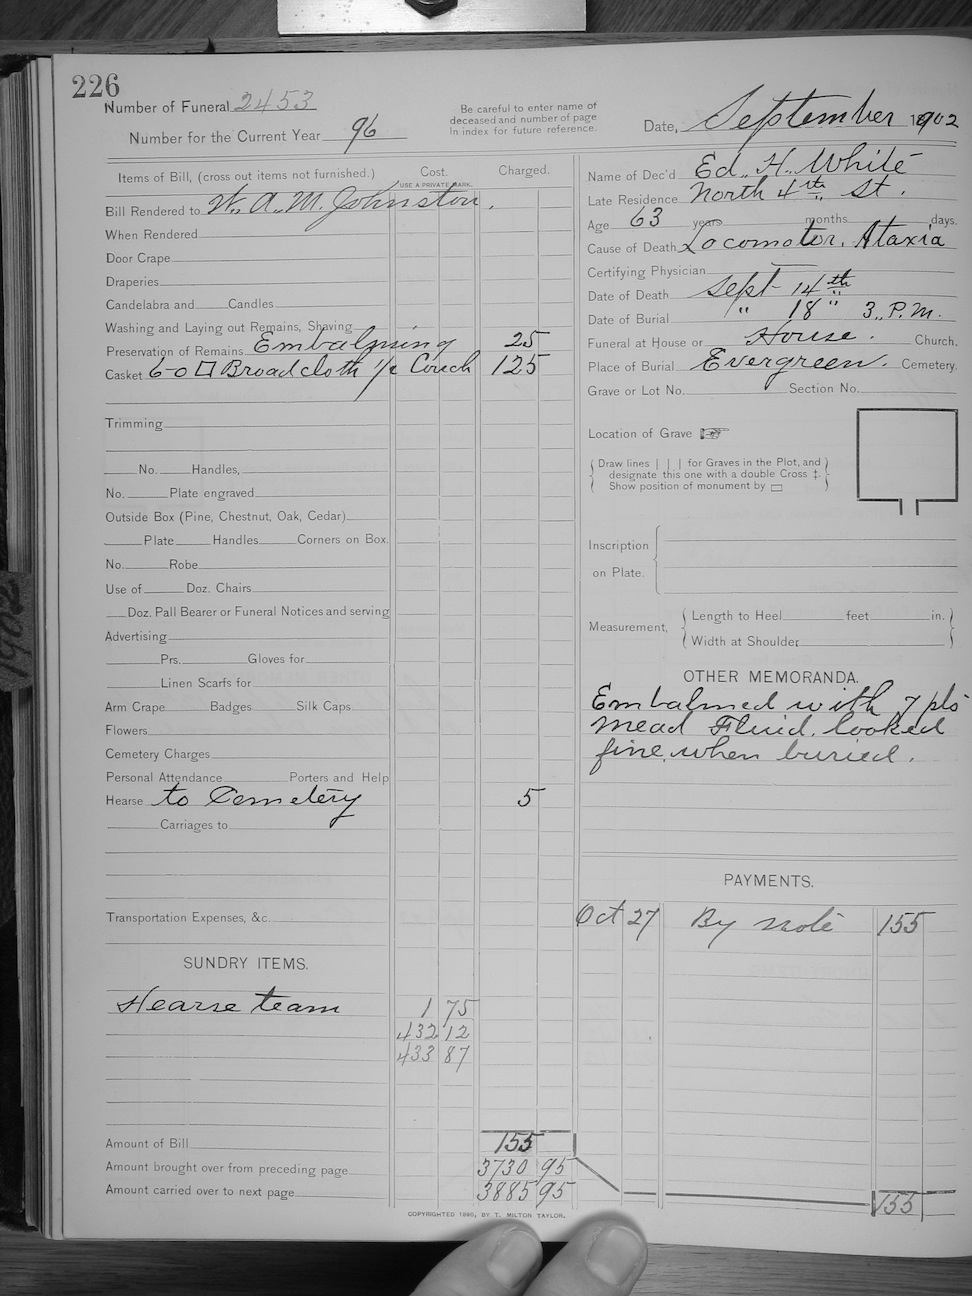 226
Number of Funeral 2453
Number for the Current Year 96
Be careful to enter name of
deceased and number of page
in index for future reference.
Date, September 1902
Items of Bill, (cross out items not furnished.) Cost. Charged.
USE A PRIVATE MARK.
Bill Rendered to W. A. M. Johnston.
When Rendered
Door Crape
Draperies
Candelabra and Candles
Washing and Laying out Remains, Shaving
Preservation of Remains Embalming 25
Casket 6-0 □ Broadcloth 1/2 Couch 125
Trimming
No. Handles,
No. Plate engraved
Outside Box (Pine, Chestnut, Oak, Cedar)
Plate Handles Corners on Box.
No. Robe
Use of Doz. Chairs
Doz. Pall Bearer or Funeral Notices and serving
Advertising
Prs. Gloves for
Linen Scarfs for
Arm Crape Badges Silk Caps
Flowers
Cemetery Charges
Personal Attendance Porters and Help
Hearse to Cemetery 5
Carriages to
Transportation Expenses, &c.
SUNDRY ITEMS.
Hearse team 1 75
432 12
433 87
Amount of Bill 155
Amount brought over from preceding page 3730 95
Amount carried over to next page 3885 95
COPYRIGHTED 1890, BY T. MILTON TAYLOR.
Name of Dec'd Ed. H. White
Late Residence North 4th St.
Age 63 years months days.
Cause of Death Locomotor. Ataxia
Certifying Physician
Date of Death Sept 14th
Date of Burial " 18" 3 P.M.
Funeral at House or House. Church.
Place of Burial Evergreen. Cemetery.
Grave or Lot No. Section No.
Location of Grave
Draw lines | | | for Graves in the Plot, and
designate this one with a double Cross ‡.
Show position of monument by ▭
Inscription
on Plate.
Measurement, Length to Heel feet in.
Width at Shoulder
OTHER MEMORANDA.
Embalmed with 7 pts
Mead Fluid. looked
fine when buried.
PAYMENTS.
Oct 27 By note 155
155
1902